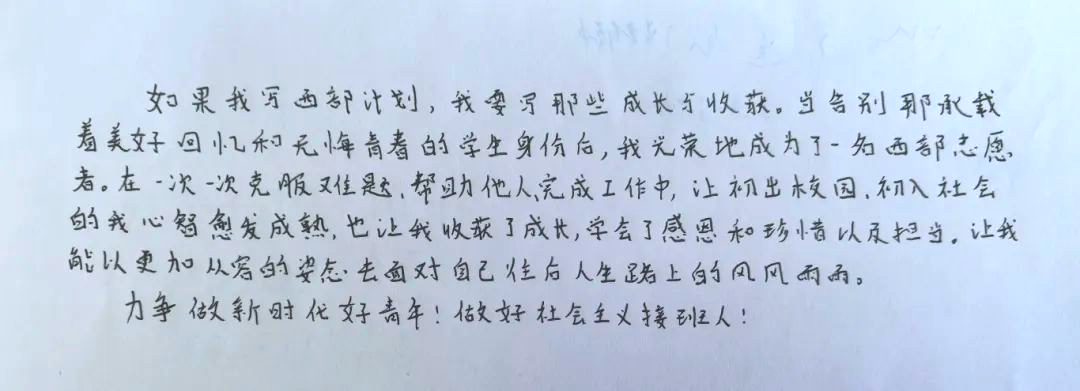 如果我写西部计划，我要写那些成长与收获。当告别那承载
着美好回忆和无悔青春的学生身份后，我光荣地成为了一名西部志愿
者。在一次一次克服难题、帮助他人、完成工作中，让初出校园、初入社会
的我心智愈发成熟，也让我收获了成长，学会了感恩和珍惜以及担当。让我
能以更加从容的姿态去面对自己往后人生路上的风风雨雨。
力争做新时代好青年！做好社会主义接班人！